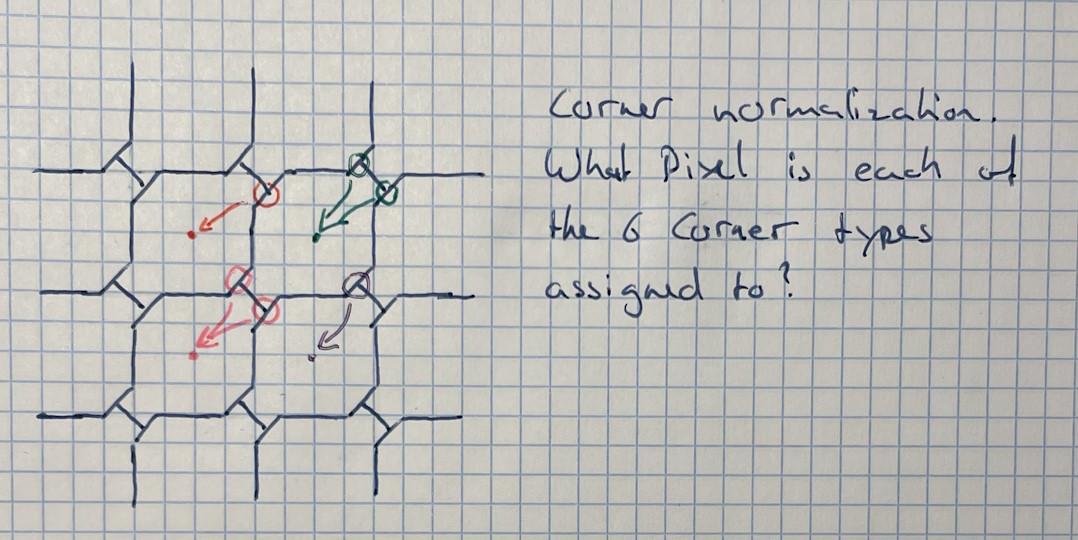 Corner normalization.
What Pixel is each of
the 6 Corner types
assigned to?